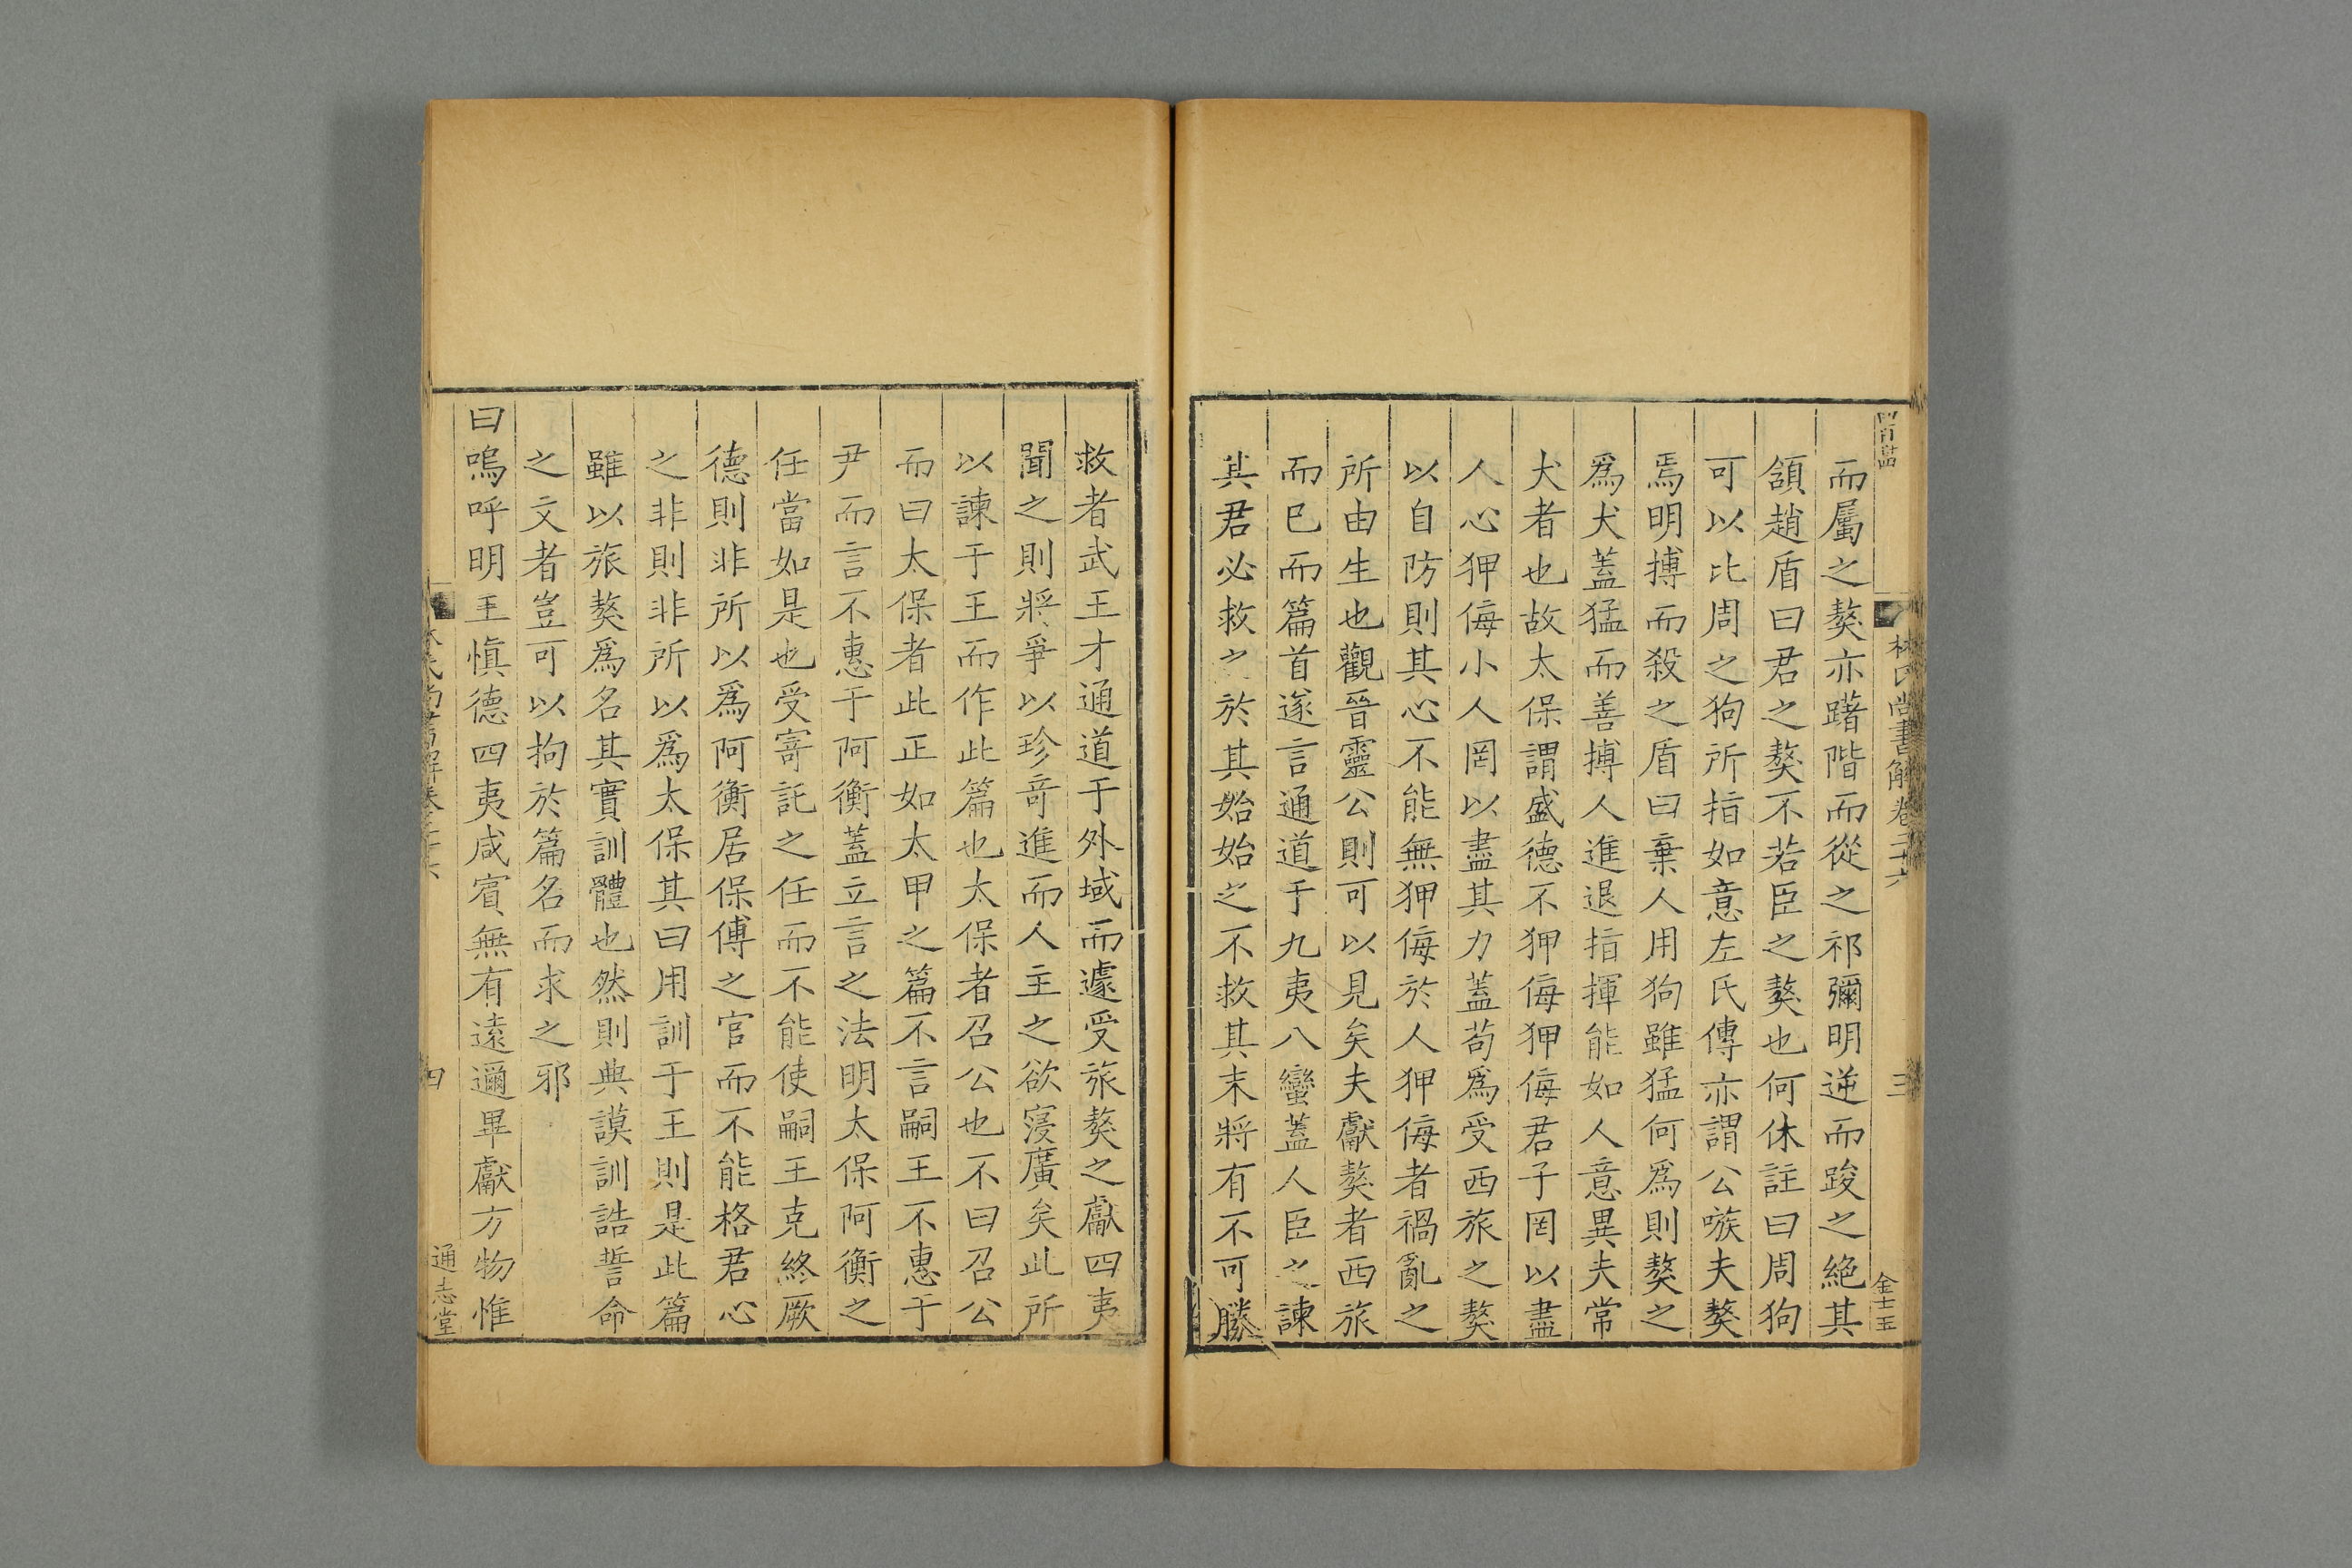 林氏尚書解卷二十六
三
金士玉
而屬之獒亦躇階而從之祁彌明逆而踆之絕其
頷趙盾曰君之獒不若臣之獒也何休註曰周狗
可以比周之狗所指如意左氏傳亦謂公嗾夫獒
焉明搏而殺之盾曰棄人用狗雖猛何爲則獒之
爲犬蓋猛而善搏人進退指揮能如人意異夫常
犬者也故太保謂盛德不狎侮狎侮君子罔以盡
人心狎侮小人罔以盡其力蓋苟爲受西旅之獒
以自防則其心不能無狎侮於人狎侮者禍亂之
所由生也觀晉靈公則可以見矣夫獻獒者西旅
而已而篇首遂言通道于九夷八蠻蓋人臣之諫
其君必救之於其始始之不救其末將有不可勝
救者武王才通道于外域而遽受旅獒之獻四夷
聞之則將爭以珍奇進而人主之欲寖廣矣此所
以諫于王而作此篇也太保者召公也不曰召公
而曰太保者此正如太甲之篇不言嗣王不惠于
尹而言不惠于阿衡蓋立言之法明太保阿衡之
任當如是也受寄託之任而不能使嗣王克終厥
德則非所以爲阿衡居保傅之官而不能格君心
之非則非所以爲太保其曰用訓于王則是此篇
雖以旅獒爲名其實訓體也然則典謨訓誥誓命
之文者豈可以拘於篇名而求之邪
曰嗚呼明王慎德四夷咸賓無有遠邇畢獻方物惟
四
通志堂